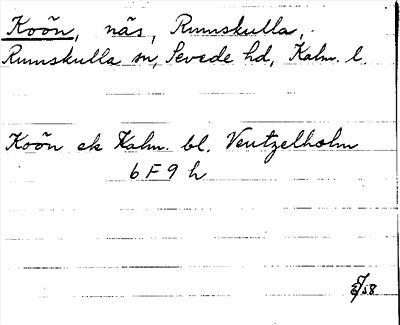 Koön, näs, Rumskulla,
Rumskulla sn, Sevede hd, Kalm. l.
Koön ek Kalm. bl. Ventzelholm
6 F 9 h